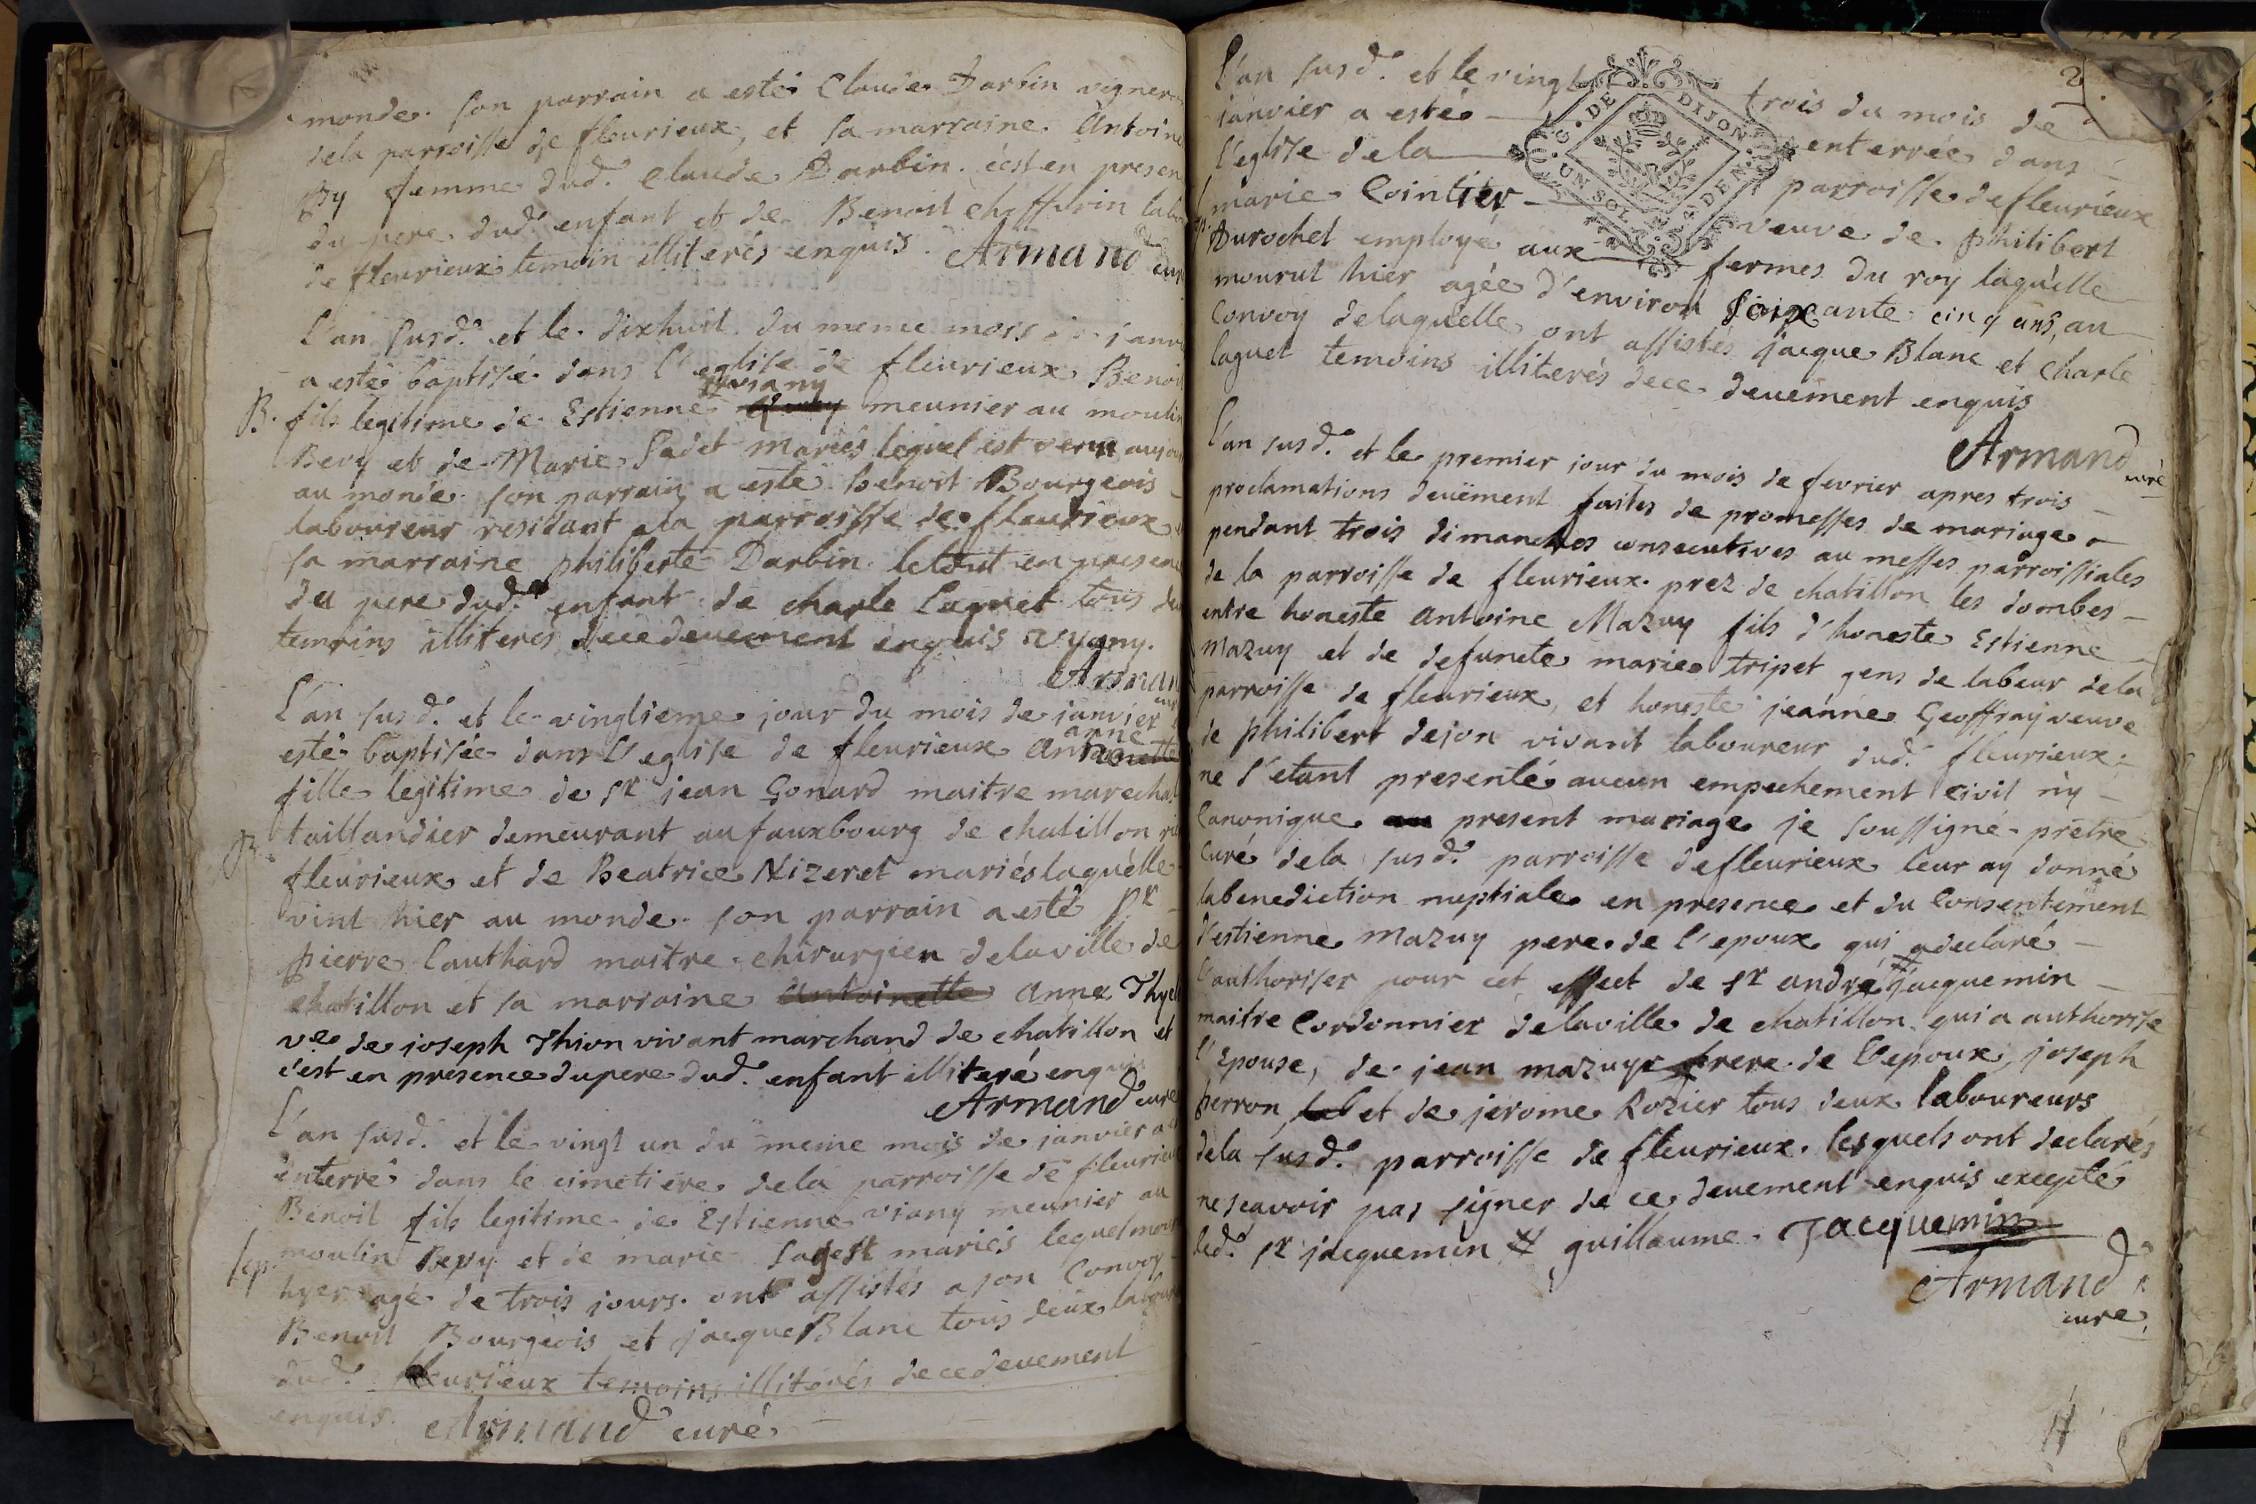 monde. son parrain a esté Claude Darbin vigneron
dela parroisse de fleurieux, et sa marraine Antoine
By femme dud.e Claude Darbin. c'est en presen
du pere dud.e enfant et de Benoit labo
de fleurieux temoin illiterés enquis. Armand curé
L'an susd.e et le dixhuit du meme mois de janvi
a esté baptisé dans l'eglise de fleurieux Benoit
B. fils legitime de Estienne meunier au moulin
Bevy et de Marie Sadet mariés lequel est venu aujou
au monde. son parrain a esté Benoit Bourgeois
laboureur residant a la parroisse de fleurieux et
sa marraine philiberte Darbin. le tout en presence
du pere dud.e enfant de charle Laguet tous deux
temoins illiteres de ce devement enquis
Arman
curé
L'an susd.e et le vingtieme jour du mois de janvier
esté baptisée dans l'eglise de fleurieux anne
fille legitime de sr jean Gonard maitre marechal
taillandier demeurant au fauxbourg de chatillon rie
B. fleurieux et de Beatrice Nizeret mariés laquelle
vint hier au monde. son parrain a esté sr
pierre Cauthard maitre chirurgien dela ville de
chatillon et sa marraine antoinette anne Thye
ve de joseph Thion vivant marchand de chatillon et
c'est en presence du pere dud.e enfant illiteré enquis
Armand curé
L'an susd.e et le vingt un du meme mois de janvier a
enterré dans le cimetiere dela parroisse de fleurieux
Benoit fils legitime de Estienne viany meunier au
sep. moulin Bevy et de marie Sadet mariés lequel mou
hyer agé de trois jours. ont assistés a son Convoy
Benoit Bourgeois et jacque Blanc tous deux labou
dud.e fleurieux temoins illiterés de ce devement
enquis. Armand curé
L'an susd.e et le vingt trois du mois de
janvier a esté enterrée dans
l'eglise de la parroisse de fleurieux
marie Cointier veuve de philibert
Durochel employé aux fermes du roy laquelle
mourut hier agée d'environ soixante cinq ans, au
Convoy de laquelle ont assistés jacque Blanc et Charle
laguet temoins illiterés de ce devement enquis
Armand curé
G. DE DIJON
UN SOL
L'an susd.e et le premier jour du mois de fevrier apres trois
proclamations devëment faites de promesses de mariage
pendant trois dimanches consecutives au messes parroissiales
de la parroisse de fleurieux prez de chatillon les dombes
entre honeste antoine Mazuy fils d'honeste Estienne
Mazuy et de defuncte marie tripet gens de labeur de la
parroisse de fleurieux, et honeste jeanne Geoffray veuve
de philibert dejon vivant laboureur dud.e fleurieux;
ne s'etant presenté aucun empechement civil ny
Canonique au present mariage je soussigné prêtre
Curé dela susd.e parroisse de fleurieux leur ay donné
la benediction nuptiale en presence et du Consentement
d'estienne Mazuy pere de l'epoux qui a declaré
l'authoriser pour cet effect de sr andré # jacquemin
maitre Cordonnier dela ville de chatillon qui a authorisé
l'Epouse, de jean mazuyr frere de l'epoux, joseph
perron, lab et de jerome Rozier tous deux laboureurs
dela susd.e parroisse de fleurieux. lesquels ont declarés
ne scavoir pas signer de ce devement enquis excepté
led.e sr jacquemin # guillaume. Jacquemin
Armand
curé